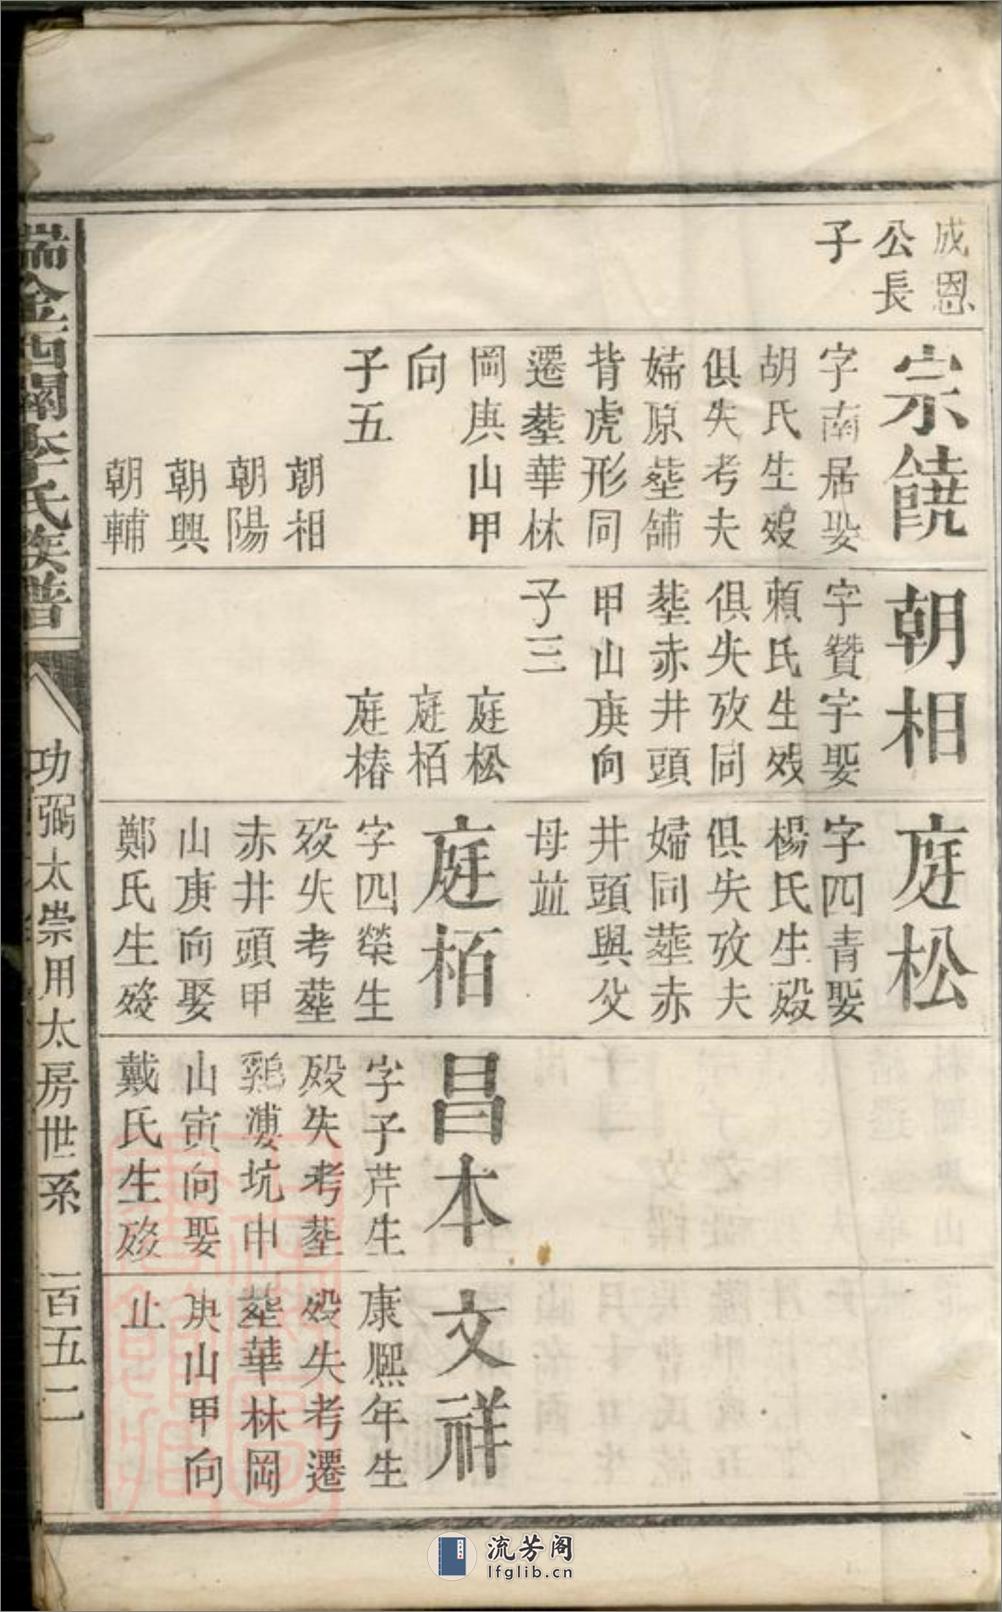 成恩
公長
子
宗饒
字南居娶
胡氏生歿
俱失考夫
婦原塟舖
背虎形同
遷塟華林
岡庚山甲
向
子五
朝相
朝陽
朝興
朝輔
朝相
字贊宇娶
賴氏生歿
俱失攷同
塟赤井頭
甲山庚向
子三
庭松
庭栢
庭椿
庭松
字四青娶
楊氏生歿
俱失攷夫
婦同塟赤
井頭與父
母竝
庭栢
字四榮生
歿失考塟
赤井頭甲
山庚向娶
鄭氏生歿
昌本
字子芹生
歿失考塟
鷄漊坑申
山寅向娶
戴氏生歿
文祥
康熈年生
歿失考遷
塟華林岡
庚山甲向
止
瑞金西關李氏族譜
功弼太崇用太房世系
一百五二
流芳阁
lfglib.cn